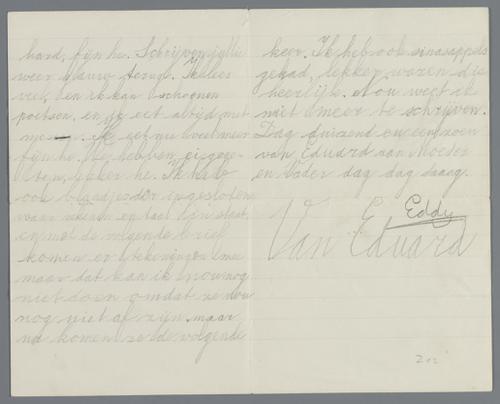 hard, fijn he. Schrijven jullie
weer gauw terug. Ik lees
veel, en ik kan schoenen
poetsen, en ik eet altijd met
Ik eet nu veel meer
fijn he. We hebben ei gege-
ten, lekker he. Ik heb
ook blaadjes er ingesloten
waar en taal op staat,
en met de volgende brief
komen er tekeningen mee
maar dat kan ik nou nog
niet doen omdat ze nou
nog niet af zijn, maar
nu komen ze de volgende
keer. Ik heb ook sinasappels
gehad, lekker waren die
heerlijk. Nou weet ik
niet meer te schrijven.
Dag duizend en een zoen
van Eduard aan Moeder
en Vader dag dag daag.
Eddy
Van Eduard